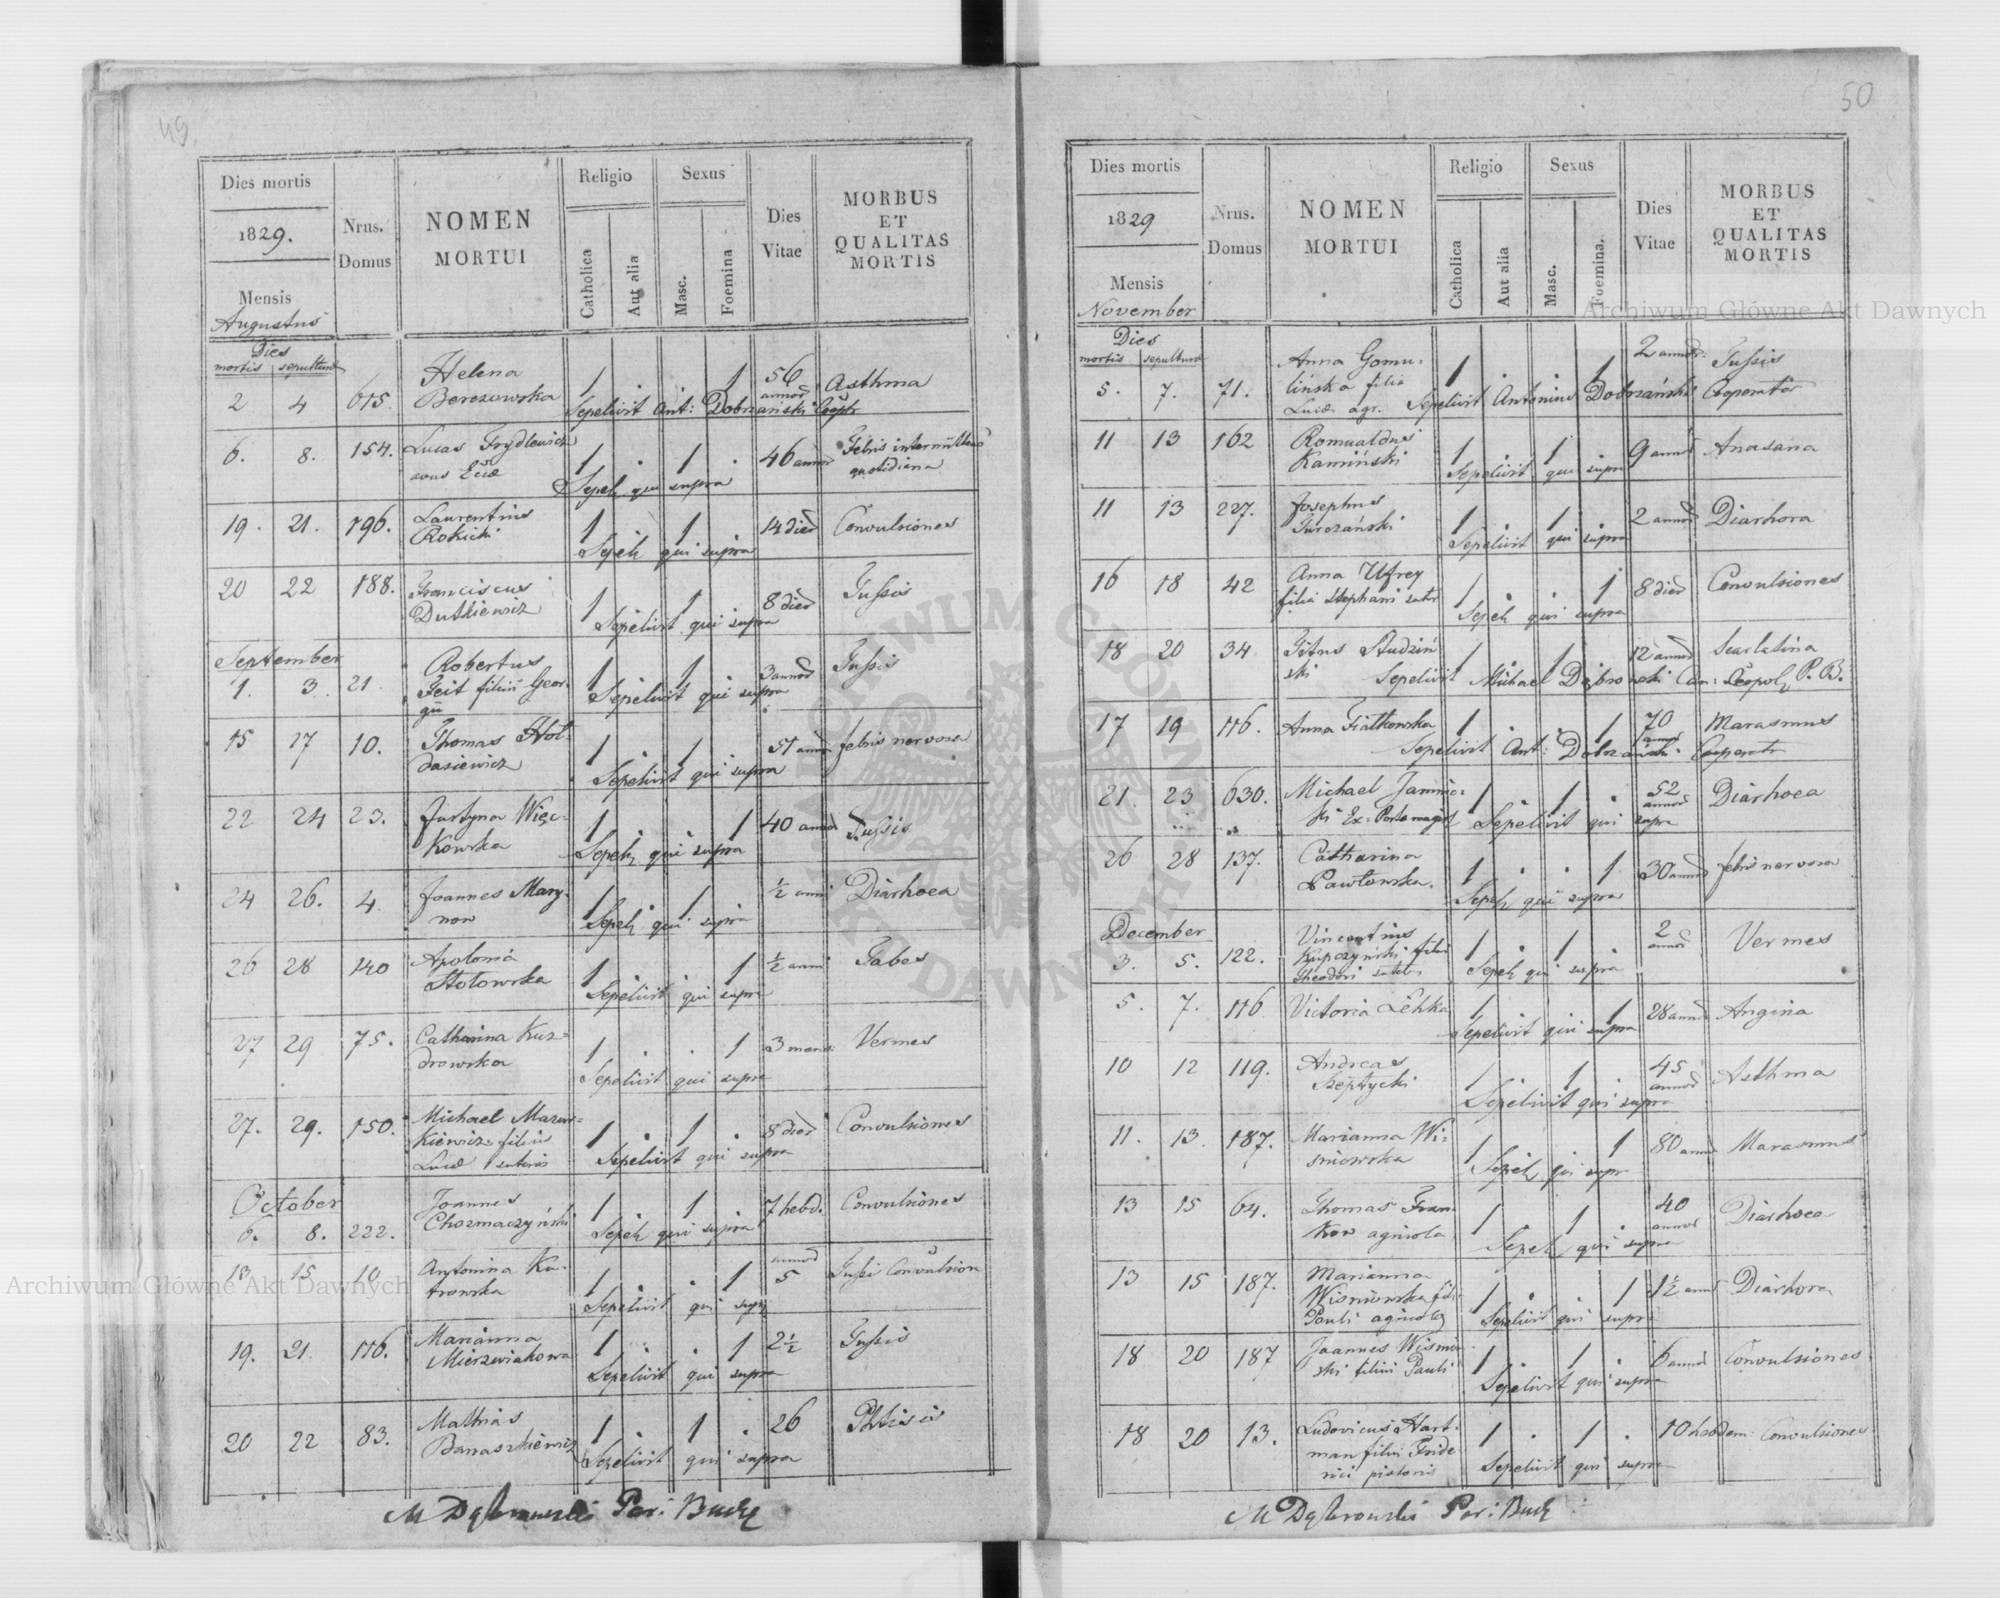 49
Dies mortis
1829.
Mensis
Augustus
Nrus.
Domus
NOMEN
MORTUI
Religio
Catholica
Aut alia
Sexus
Masc.
Foemina
Dies
Vitae
MORBUS
ET
QUALITAS
MORTIS
Dies
mortis sepulturae
2 4 615 Helena
Berezowska 1 . . 1 56
annor Asthma
Sepelivit Ant: Dobrzański Coop
6. 8. 154. Lucas Frydlewicz
avus Eccl 1 . 1 . 46 annor Febris intermittens
quotidiana
Sepel qui supra
19. 21. 196. Laurentius
Rokicki 1 . 1 14 dier Convulsiones
Sepel qui supra
20 22 188. Franciscus
Dutkiewicz 1 1 8 dier Tussis
Sepelivit qui supra
September
1. 3. 21. Robertus
Feit filius Geor-
gii 1 1 3 annor Tussis
Sepelivit qui supra
15 17 10. Thomas Hol-
dasiewicz 1 . 1 51 annor febris nervosa
Sepelivit qui supra
22 24 23. Justyna Więc-
kowska 1 . . 1 40 annor Tussis
Sepel qui supra
24 26. 4. Joannes Mary-
now 1 . 1 ½ anni Diarhoea
Sepel qui supra
26 28 140 Apolonia
Stotowska 1 . . 1 ½ anni Tabes
Sepelivit qui supra
27 29 75. Catharina Kuz-
drowska 1 . . 1 3 mens: Vermes
Sepelivit qui supra
27. 29. 150. Michael Mazur-
kiewicz filius
Lucae sutoris 1 . 1 . 8 dier Convulsiones
Sepelivit qui supra
October
6. 8. 222. Joannes
Chozmaczyński 1 1 7 hebd. Convulsiones
Sepel qui supra
13 15 10 Antonina Ku-
trowska 1 . . 1 annor
5 Tussi Convulsion
Sepelivit qui supr
19. 21. 116. Marianna
Mierzwiakowa 1 . . 1 2½ Tussis
Sepelivit qui supra
20 22 83. Mathias
Banaszkiewicz 1 . 1 . 26 Phtisis
Sepelivit qui supra
M Dąbrowski Par: Buck
50
Dies mortis
1829
Mensis
November
Nrus.
Domus
NOMEN
MORTUI
Religio
Catholica
Aut alia
Sexus
Masc.
Foemina.
Dies
Vitae
MORBUS
ET
QUALITAS
MORTIS
Dies
mortis sepulturae
5. 7. 71. Anna Gomu-
lińska filia
Lucae agr. 1 . . 1 2 annor: Tussis
Sepelivit Antonius Dobrzański Cooperator
11 13 162 Romualdus
Kamiński 1 1 9 annor Anasana
Sepelivit qui supra
11 13 227. Josephus
Turczański 1 1 2 annor Diarhora
Sepelivit qui supra
16 18 42 Anna Ufrey
filia Stephani sutor 1 . . 1 8 dier Convulsiones
Sepel qui supra
18 20 34 Titus Studziń
ski 1 1 12 annor Scarlatina
Sepelivit Michael Dąbrowski Can: Leopol P. B.
17 19 116. Anna Fiatkowska 1 . . 1 70
annor Marasmus
Sepelivit Ant: Dobrzański Cooperator
21. 23 630. Michael Jamnic-
ki 1 . 1 . 52
annor Diarhoea
Sepelivit qui supra
26 28 137. Catharina
Pawłowska. 1 . . 1 30 annor febris nervosa
Sepel qui supra
December
3. 5. 122. Vincentius
Kupczyński filius
Theodori 1 . 1 . 2
annor Vermes
Sepel qui supra
5. 7. 116 Victoria Lehka 1 . . 1 28 annor Angina
Sepelivit qui supra
10 12 119. Andreas
Szeptycki 1 1 45
annor Asthma
Sepelivit qui supra
11. 13. 187. Marianna Wi-
sniowska 1 . . 1 80 annor Marasmus
Sepel qui supr
13 15 64. Thomas Fran
kow agricola 1 1 . 40
annor Diarhoea
Sepel qui supra
13 15 187. Marianna
Wisniowska fili
Pauli agricola 1 . . 1 1½ anni Diarhora
Sepelivit qui supra
18 20 187 Joannes Wisniow
ski filius Pauli 1 . 1 . 6 annor Convulsiones
Sepelivit qui supra
18 20 13. Ludovicus Hart-
man filius Fride
rici pistoris 1 . 1 . 10 hebdom: Convulsiones
Sepelivit qui supra
M Dąbrowski Par: Buck
Archiwum Główne Akt Dawnych
Archiwum Główne Akt Dawnych
ARCHIWUM GŁÓWNE AKT DAWNYCH